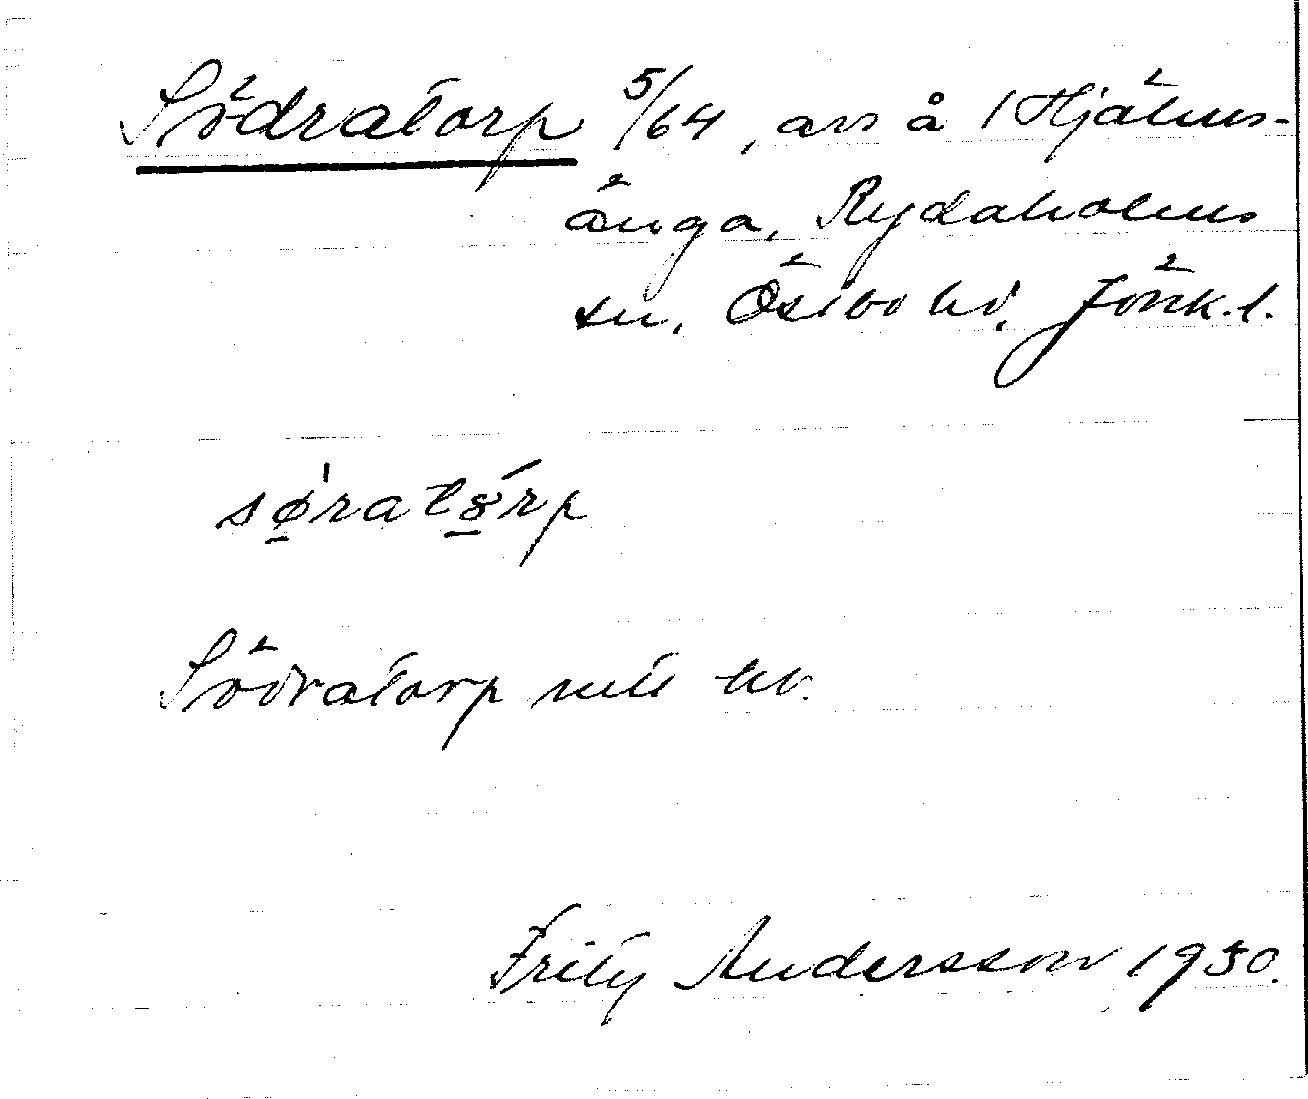 Södratorp 5/64, avs å 1 Hjälms-
änga, Rydaholms
sn, Östbo hd, Jönk. l.
søratȣrp
Södratorp utt hd.
Fritz Andersson 1930.